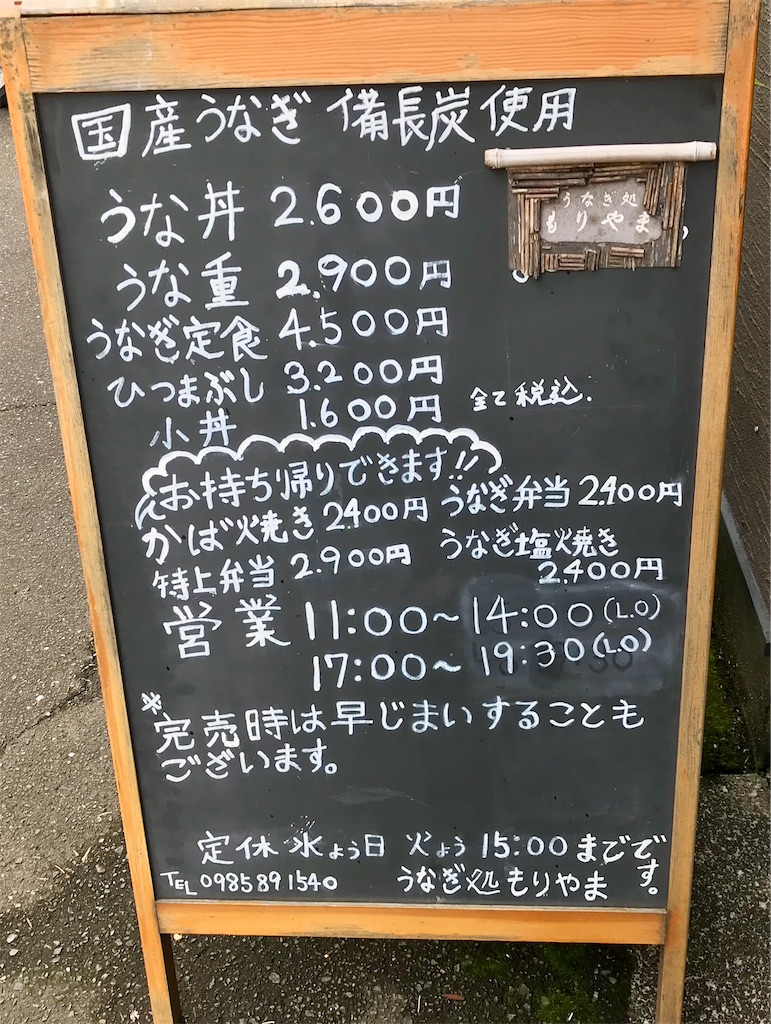 国産うなぎ 備長炭使用
うなぎ処
もりやま
うな丼 2.600円
うな重 2.900円
うなぎ定食 4.500円
ひつまぶし 3.200円
小丼 1.600円
全て税込.
お持ち帰りできます!!
かば焼き 2400円 うなぎ弁当 2.400円
特上弁当 2.900円 うなぎ塩焼き
2.400円
営業 11:00~14:00(L.O)
17:00~ 19:30(L.O)
*完売時は早じまいすることも
ございます。
定休 水よう日 火よう 15:00までです。
TEL 0985891540 うなぎ処もりやま